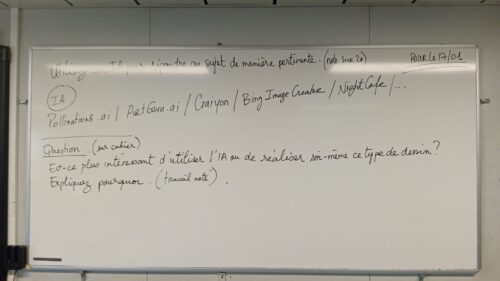 Utilisez une IA pour répondre au sujet de manière pertinente. (note sur 20)
POUR LE 17/01
IA
Pollinations.ai / ArtGuru.ai / Craiyon / Bing Image Creator / NightCafe / ...
Question. (sur cahier)
Est-ce plus intéressant d'utiliser l'IA ou de réaliser soi-même ce type de dessin?
Expliquez pourquoi. (travail noté).